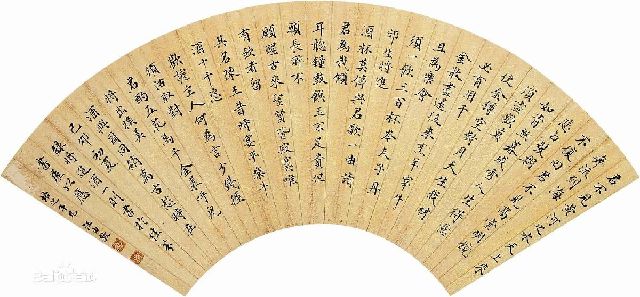 君不見黃河之水天上來
奔流到海
不復回君不見高堂明鏡
悲白髮朝
如青絲暮成雪人生得意
須盡歡莫
使金樽空對月天生我材
必有用千
金散盡還復來烹羊宰牛
且為樂會
須一飲三百杯岑夫子丹
邱生將進
酒杯莫停與君歌一曲請
君為我傾
耳聽鐘鼓饌玉不足貴但
願長醉不
願醒古來聖賢皆寂寞唯
有飲者留
其名陳王昔時宴平樂斗
酒十千恣
歡謔主人何為言少錢徑
須沽取對
君酌五花馬千金裘呼兒
將出換美
酒與爾同銷萬古愁時在
己卯初夏
錄將進酒一則書於